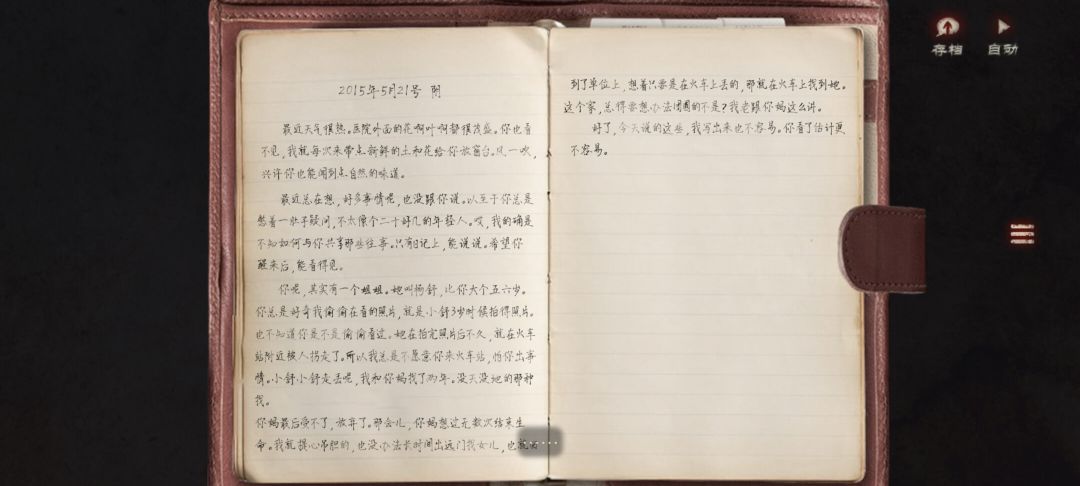 存档 自动
2015年5月21号 阴
最近天气很热。医院外面的花啊叶啊都很茂盛。你也看
不见,我就每次来带点新鲜的土和花给你放窗台。风一吹,
兴许你也能闻到点自然的味道。
最近总在想,好多事情呢,也没跟你说。以至于你总是
憋着一肚子疑问,不太像个二十好几的年轻人。哎,我的确是
不知如何与你共享那些往事。只有日记上,能说说。希望你
醒来后,能看得见。
你呢,其实有一个姐姐。她叫杨舒,比你大个五六岁。
你总是好奇我偷偷在看的照片,就是小舒3岁时候拍得照片。
也不知道你是不是偷偷看过。她在拍完照片后不久,就在火车
站附近被人拐走了。所以我总是不愿意你来火车站,怕你出事
情。小舒小舒走丢呢,我和你妈找了两年。没天没地的那种
找。
你妈最后受不了,放弃了。那会儿,你妈想过无数次结束生
命。我就提心吊胆的,也没办法长时间出远门找女儿,也就
到了单位上,想着只要是在火车上丢的,那就在火车上找到她。
这个家,总得要想办法团圆的不是?我老跟你妈这么讲。
好了,今天说的这些,我写出来也不容易。你看了估计更
不容易。